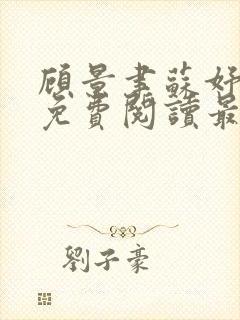 顾景書蘇好
免費閱讀最
劉子豪